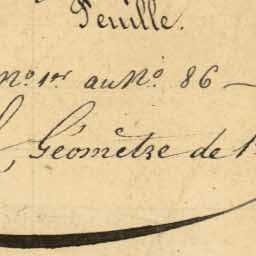 Feuille.
No. 1er au No. 86 —
, Géomètre de 1